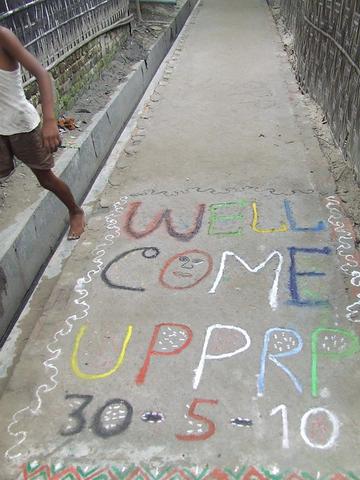 WELL
COME
UPPRP
30-5-10